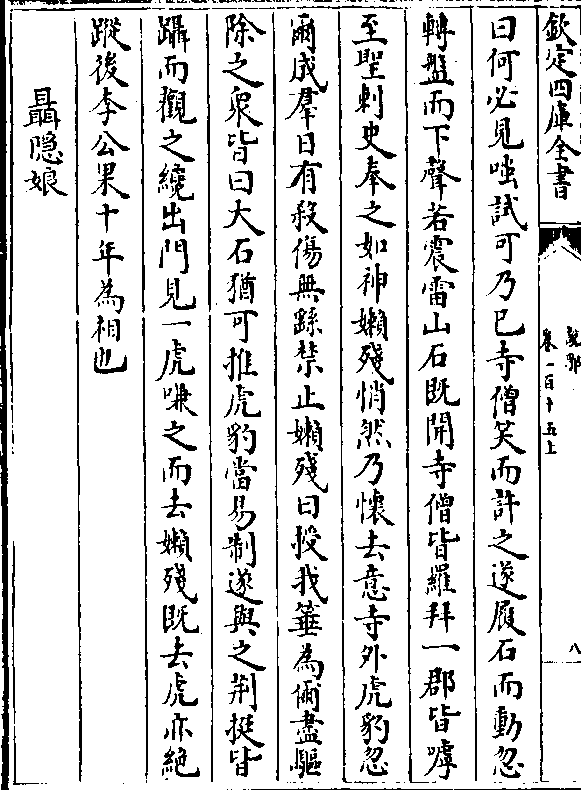 欽定四庫全書
說郛
卷一百十五上
八
曰何必見嗤試可乃已寺僧笑而許之遂履石而動忽
轉盤而下聲若震雷山石既開寺僧皆羅拜一郡皆呼
至聖刺史奉之如神嬾殘悄然乃懷去意寺外虎豹忽
爾成羣日有殺傷無繇禁止嬾殘曰授我箠為爾盡驅
除之衆皆曰大石猶可推虎豹當易制遂與之荆挺皆
躡而觀之纔出門見一虎㗸之而去嬾殘既去虎亦絶
蹤後李公果十年為相也
聶隠娘